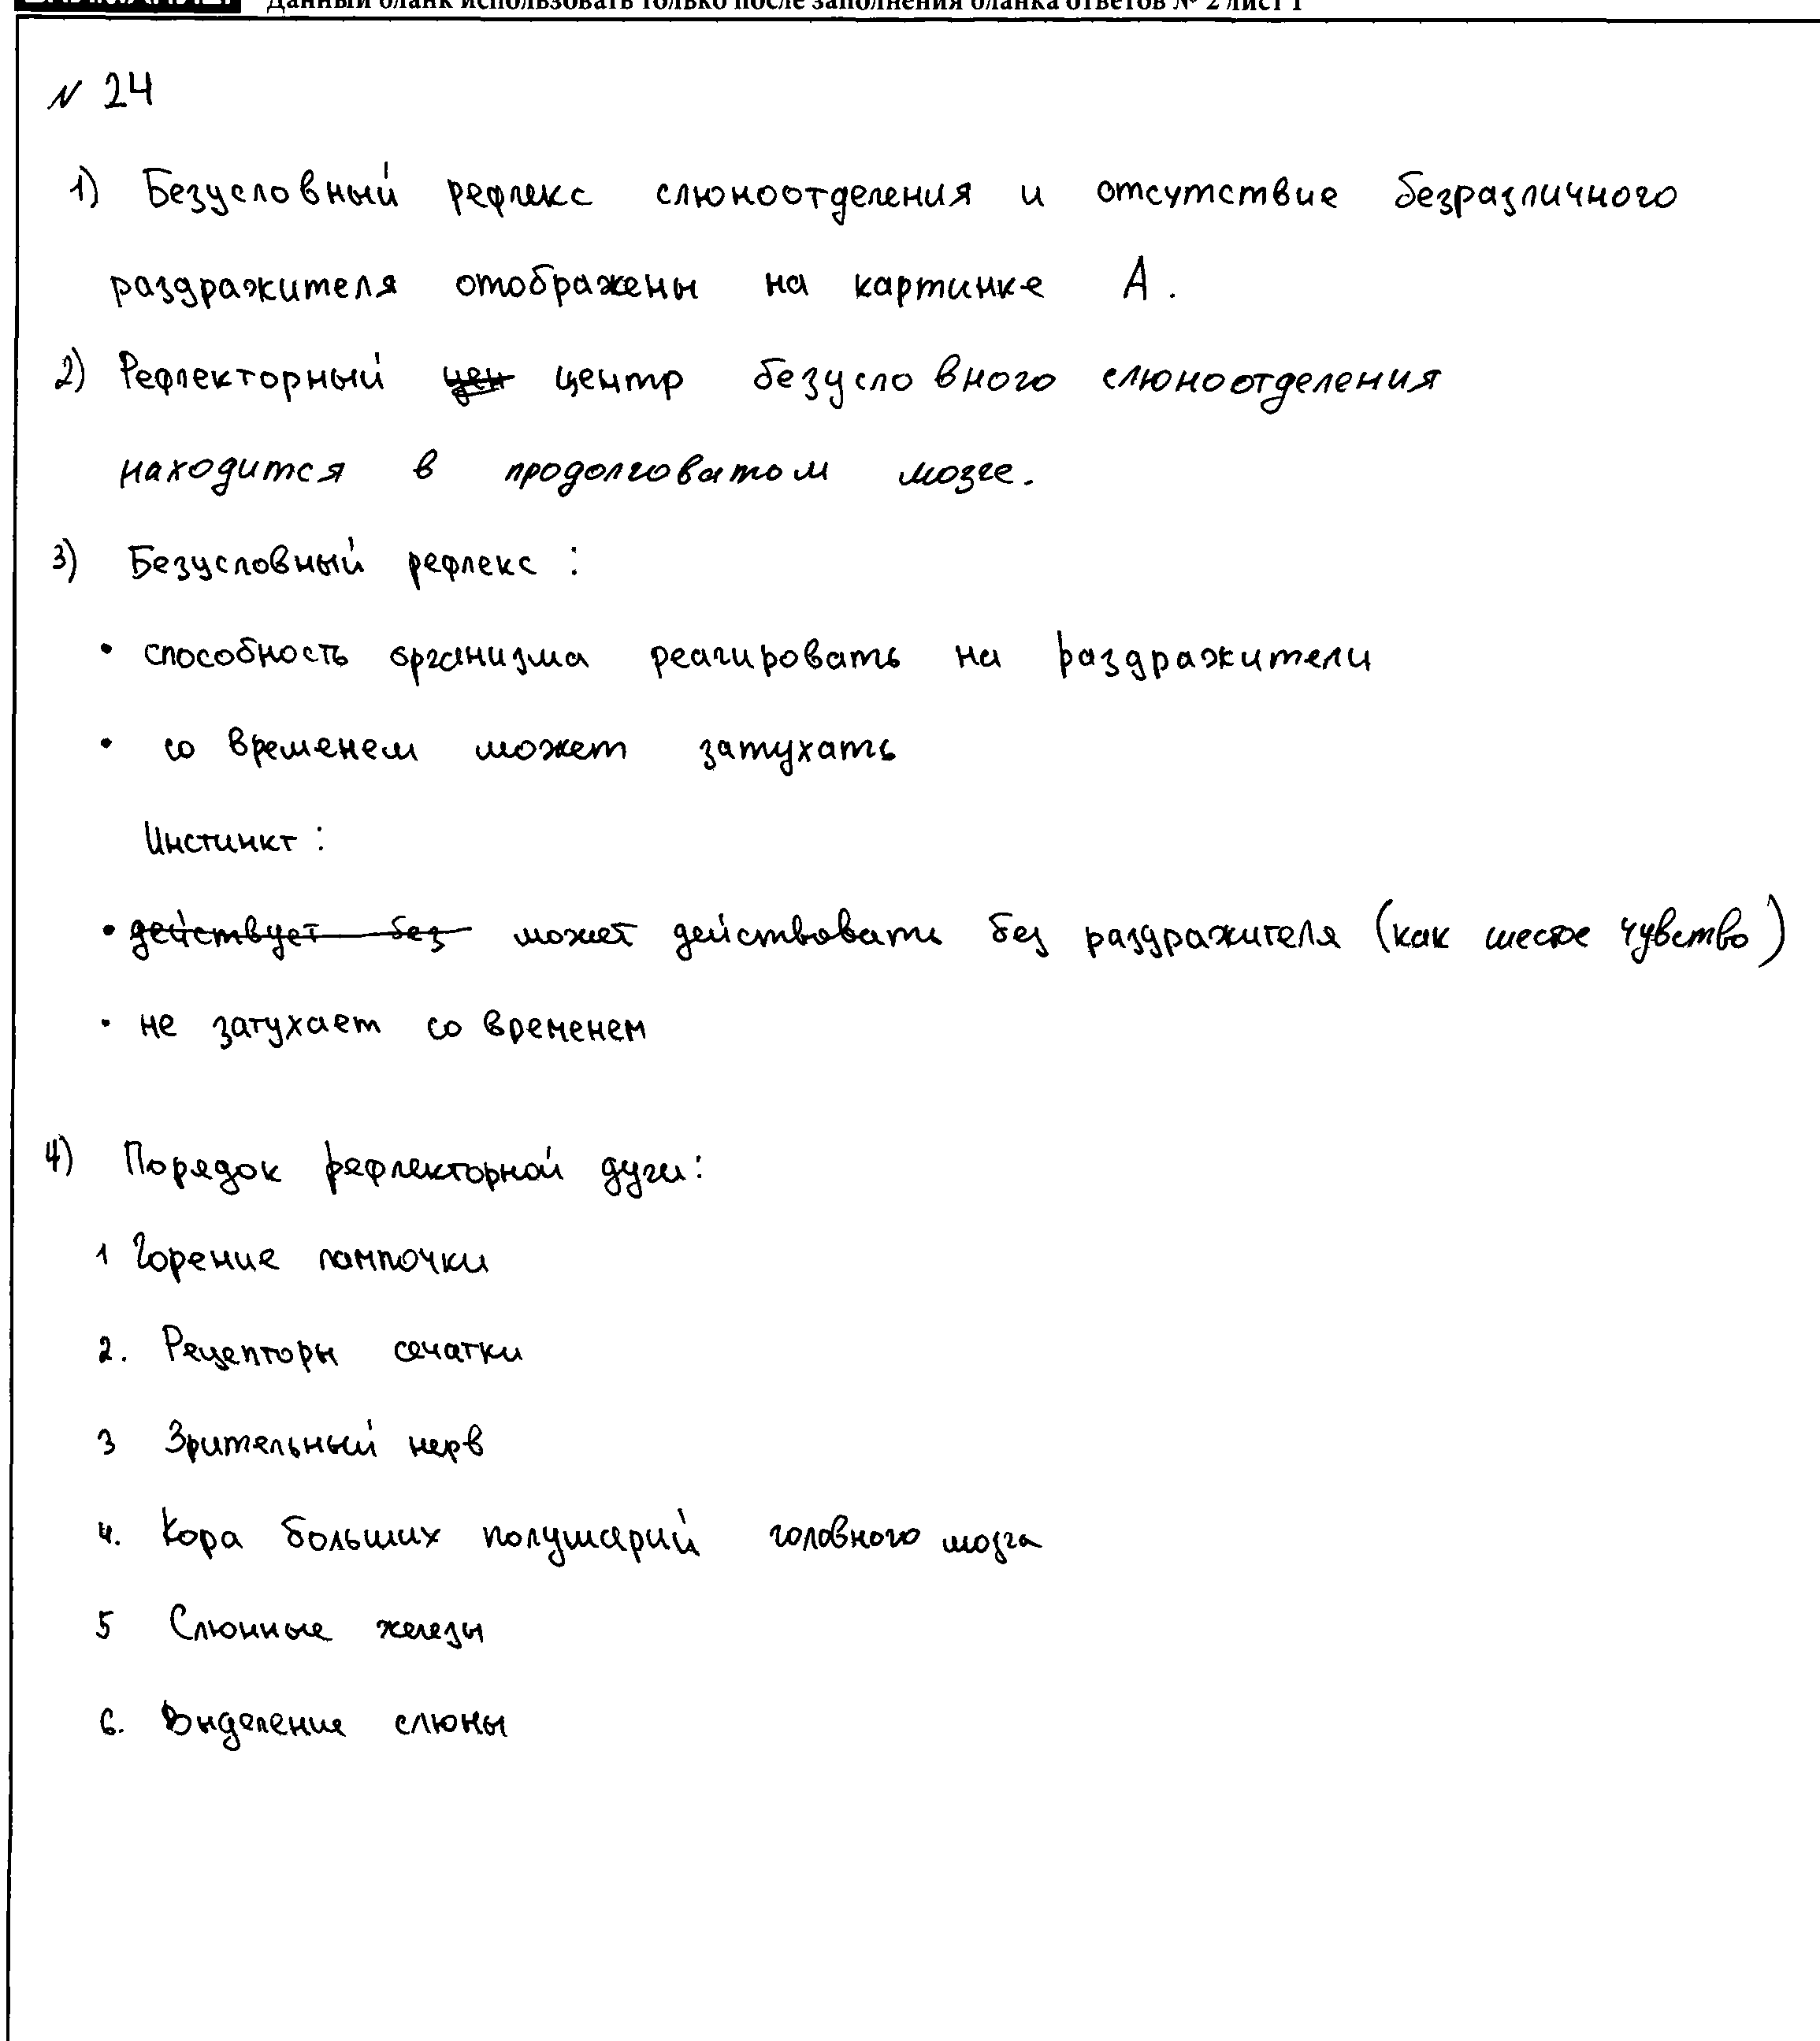 Данный бланк использовать только после заполнения бланка ответов № 2 лист 1
№ 24
1) Безусловный рефлекс слюноотделения и отсутствие безразличного
раздражителя отображены на картинке А.
2) Рефлекторный цен центр безусловного слюноотделения
находится в продолговатом мозге.
3) Безусловный рефлекс :
• способность организма реагировать на раздражители
• со временем может затухать
Инстинкт :
• действует без может действовать без раздражителя (как шестое чувство)
• не затухает со временем
4) Порядок рефлекторной дуги:
1 Горение лампочки
2. Рецепторы сечатки
3 Зрительный нерв
4. Кора больших полушарий головного мозга
5 Слюнные железы
6. Выделение слюны